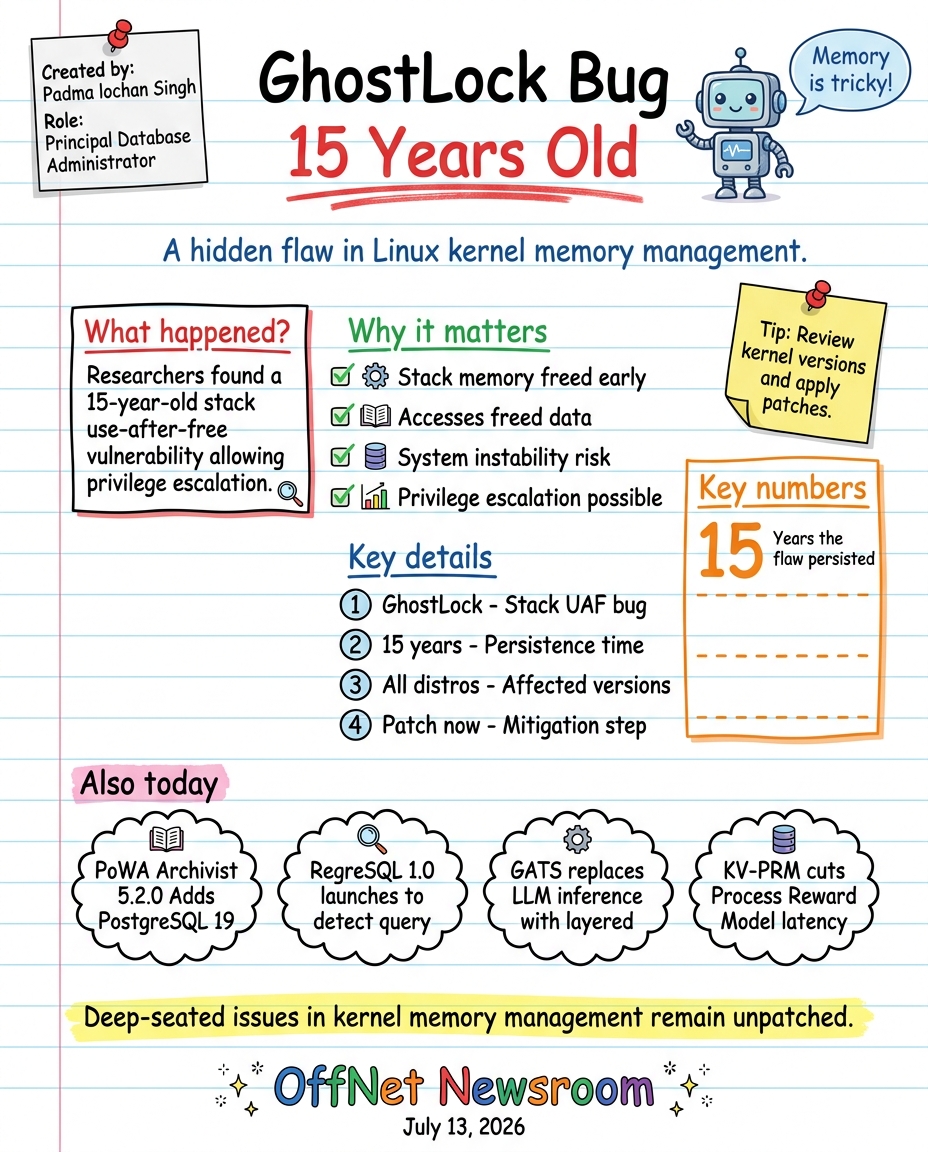 Created by:
Padma lochan Singh
Role:
Principal Database
Administrator
GhostLock Bug
15 Years Old
Memory
is tricky!
A hidden flaw in Linux kernel memory management.
What happened?
Researchers found a
15-year-old stack
use-after-free
vulnerability allowing
privilege escalation.
Why it matters
Stack memory freed early
Accesses freed data
System instability risk
Privilege escalation possible
Tip: Review
kernel versions
and apply
patches.
Key numbers
15
Years the
flaw persisted
Key details
1 GhostLock - Stack UAF bug
2 15 years - Persistence time
3 All distros - Affected versions
4 Patch now - Mitigation step
Also today
PoWA Archivist
5.2.0 Adds
PostgreSQL 19
RegreSQL 1.0
launches to
detect query
GATS replaces
LLM inference
with layered
KV-PRM cuts
Process Reward
Model latency
Deep-seated issues in kernel memory management remain unpatched.
OffNet Newsroom
July 13, 2026